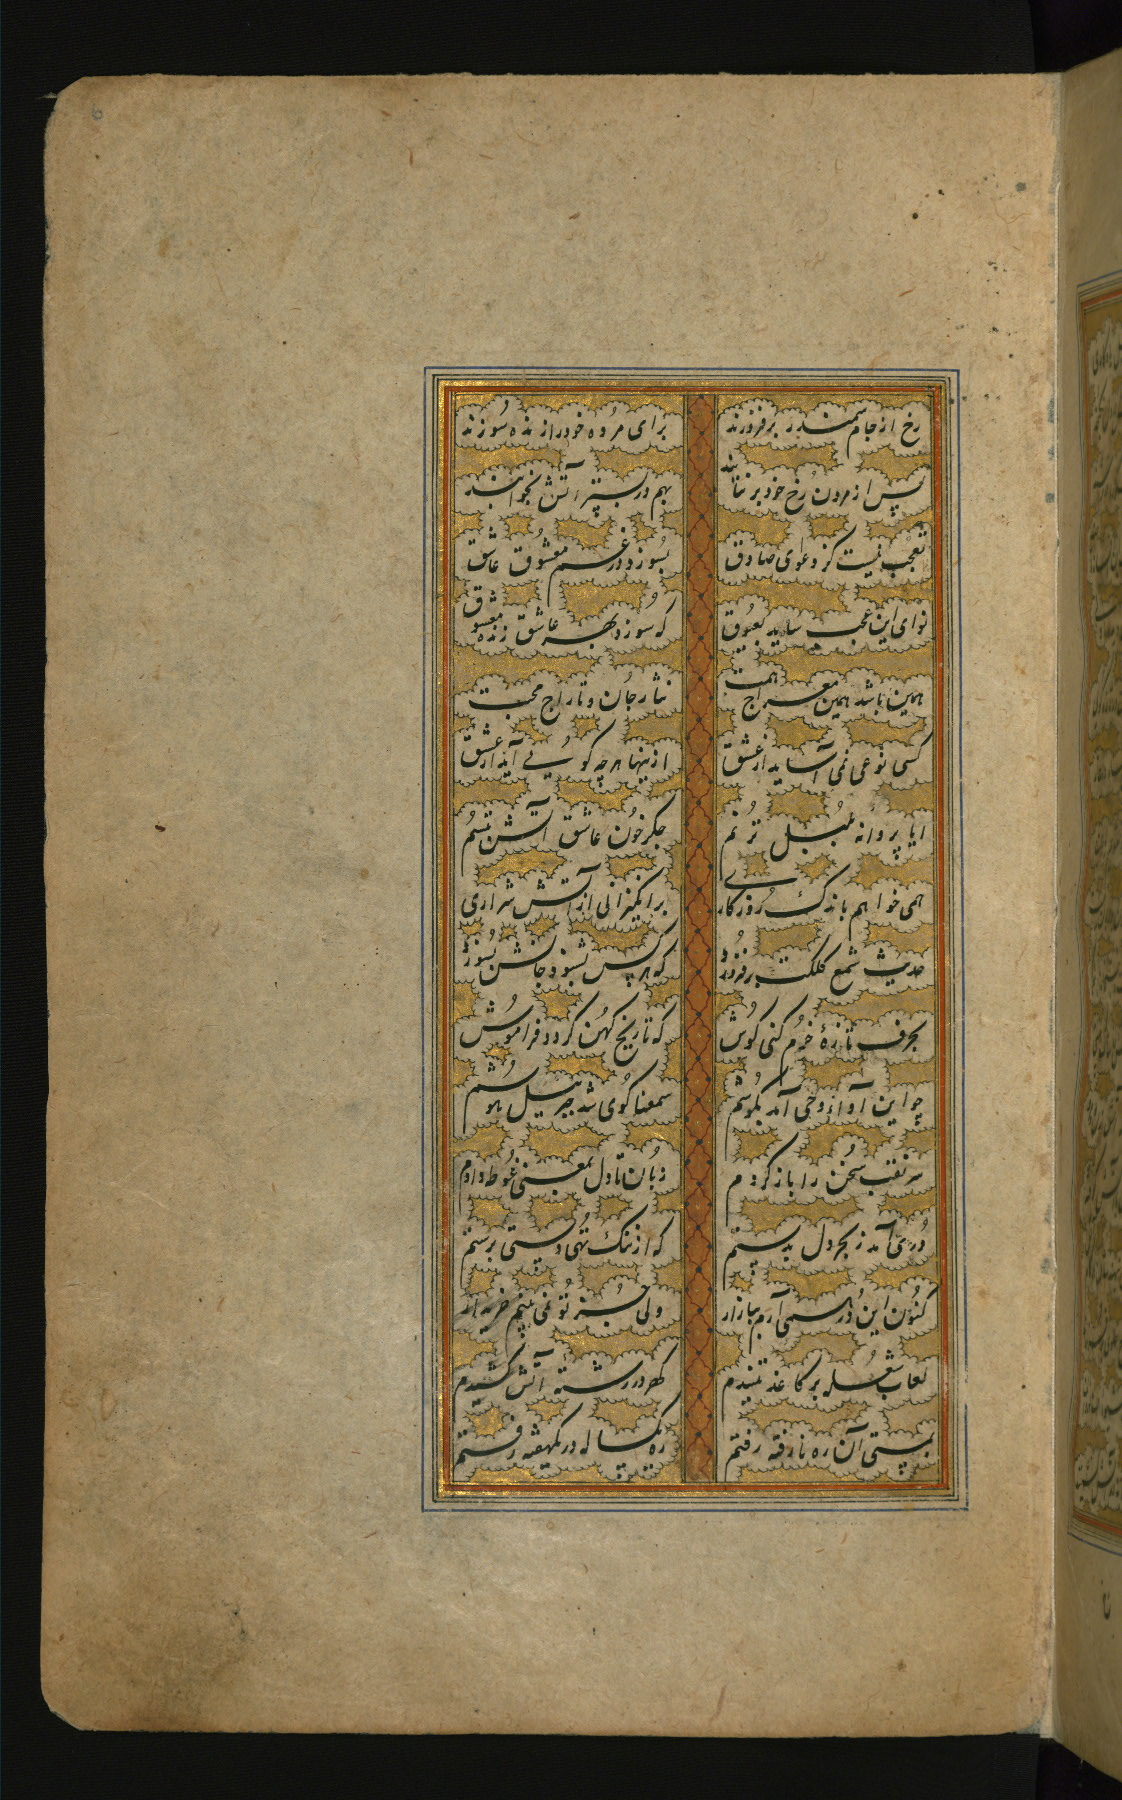 رخ از جام سمندر بر فروزند برای مرده خود را زنده سوزند
پس از مردن رخ خود بر نتابند بهم در بستر آتش بخوابند
تعجب نیست کز دعوی صادق بسوزد در غم معشوق عاشق
نوای این عجب ساید بعیوق که سوزد بهر عاشق زنده معشوق
همین باشد همین معراج همت نثار جان و تاراج محبت
کسی نوعی نمی آساید از عشق ازینها هر چه گویی آید از عشق
ایا پروانه بلبل ترنم جگر خون عاشق آتش تبسم
همی خواهم باندک روزگاری برانگیزانی از آتش شراری
حدیث شمع کلکت بر فروزد که هر کس بشنود جانش بسوزد
بحرف تازهٔ خرم کنی گوش که تاریخ کهن گردد فراموش
چو این آواز وحی آمد بگوشم سمعنا گوی شد جبریل هوشم
سر نقب سخن را باز کردم زبان تا دل بمعنی غوطه دادم
دری آمد ز بحر دل بدستم که از ننگ تهی دستی برستم
کنون این در همی آرم ببازار ولی جز تو نمی بینم خریدار
لعاب شعله بر کاغذ تنیدم گهر در رشته آتش کشیدم
بپستی آن ره نارفته رفتم ره یکساله در یکهفته رفتم